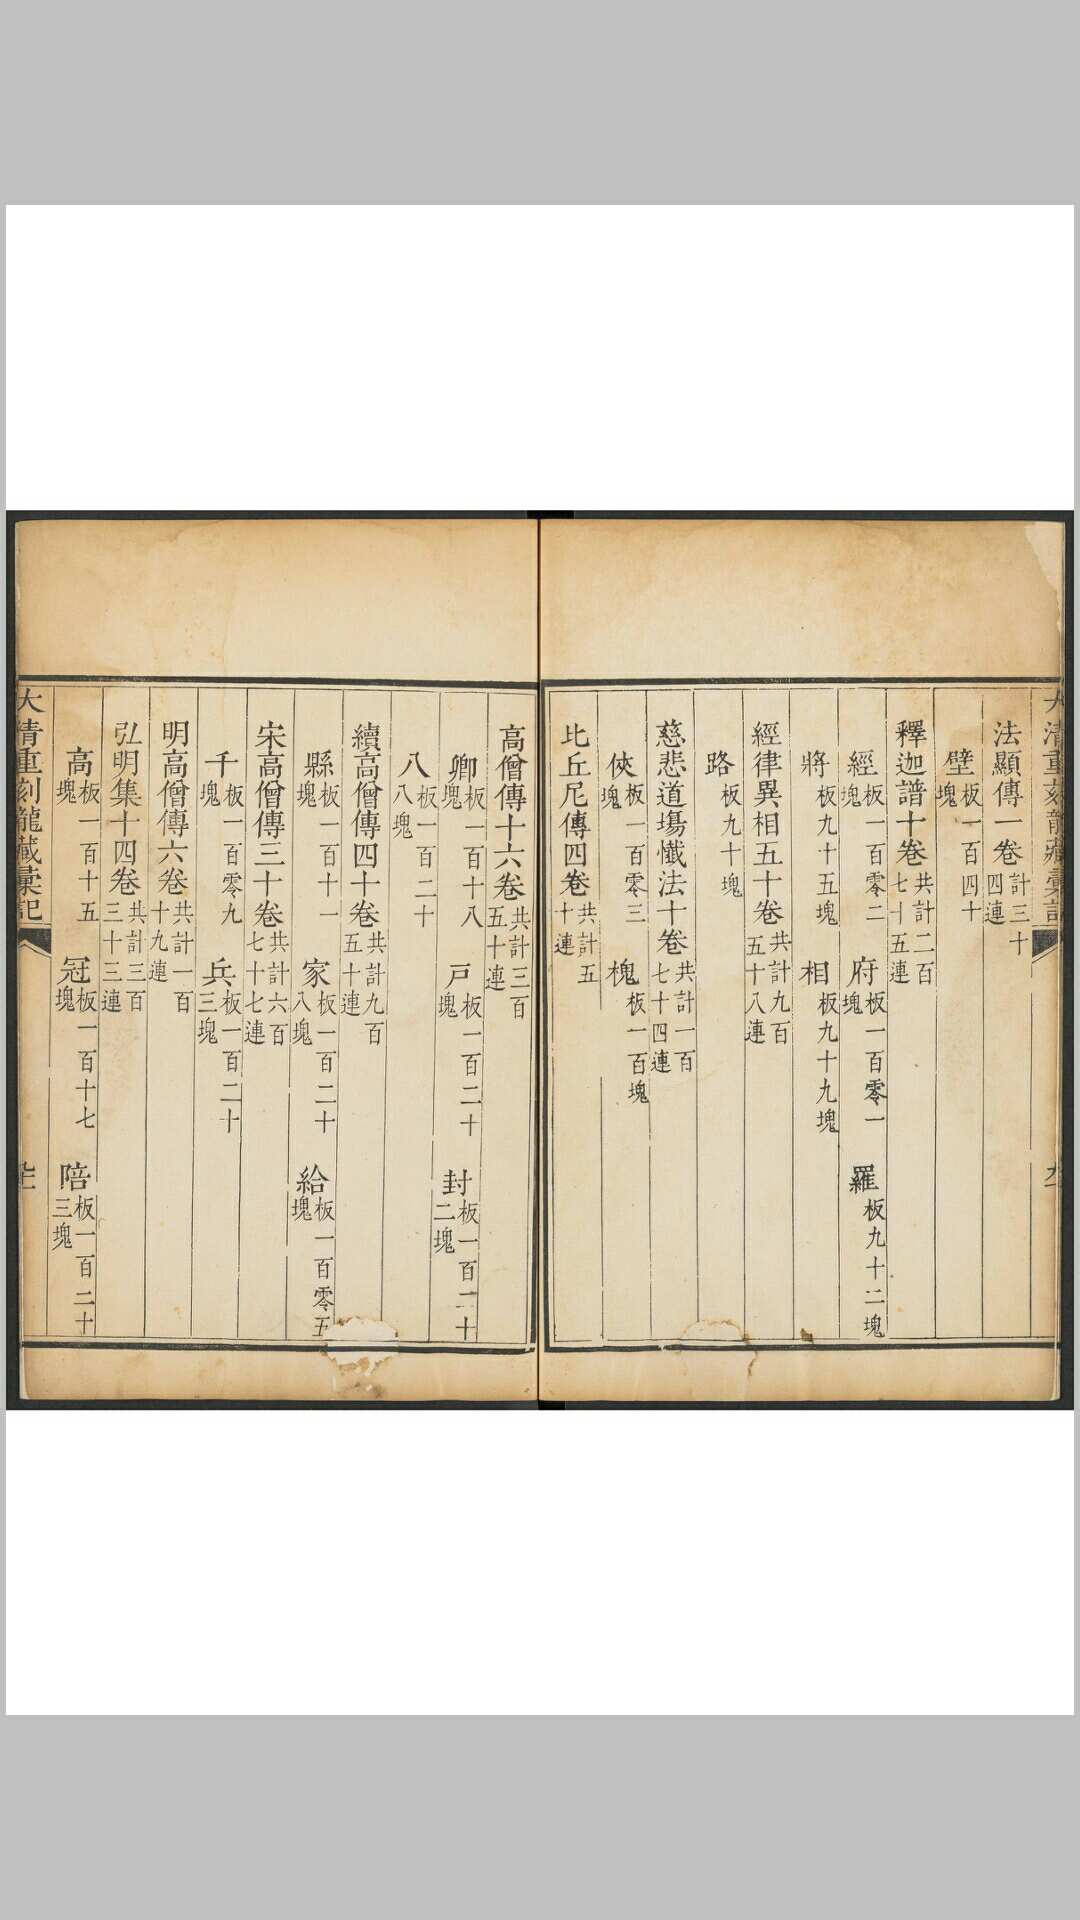 法顯傳一卷計三十四連
壁板一百四十塊
釋迦譜十卷共計二百七十五連
經板一百零二塊 府板一百零一塊 羅板九十二塊
將板九十五塊 相板九十九塊
經律異相五十卷共計九百五十八連
路板九十塊
慈悲道塲懺法十卷共計一百七十四連
俠板一百零三塊 槐板一百塊
比丘尼傳四卷共計五十連
高僧傳十六卷共計三百五十連
卿板一百十八塊 戸板一百二十塊 封板一百二十二塊
八板一百二十八塊
續高僧傳四十卷共計九百五十連
縣板一百十一塊 家板一百二十八塊 給板一百零五塊
宋高僧傳三十卷共計六百七十七連
千板一百零九塊 兵板一百二十三塊
明高僧傳六卷共計一百十九連
弘明集十四卷共計三百三十三連
高板一百十五塊 冠板一百十七塊 陪板一百二十三塊
大清重刻龍藏彙記